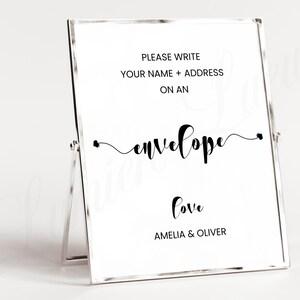 PLEASE WRITE
YOUR NAME + ADDRESS
ON AN
envelope
love
AMELIA & OLIVER